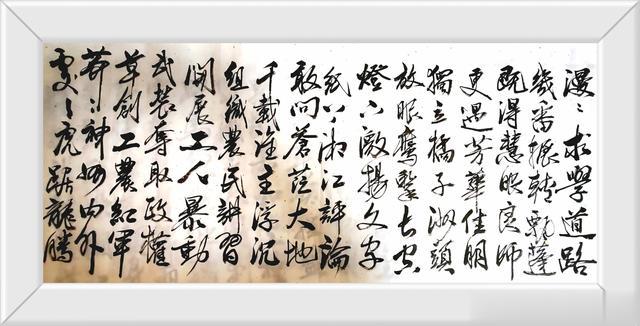 漫〻求學道路
幾番輾轉飄蓬
既得慧眼良師
更遇芳華佳朋
獨立橘子洲頭
放眼鷹擊長空
燈下激揚文字
紙上湘江評論
敢問蒼茫大地
千載誰主浮沉
組織農民講習
開展工人暴動
武裝奪取政權
草創工農紅軍
莽〻神州內外
處〻虎踞龍騰